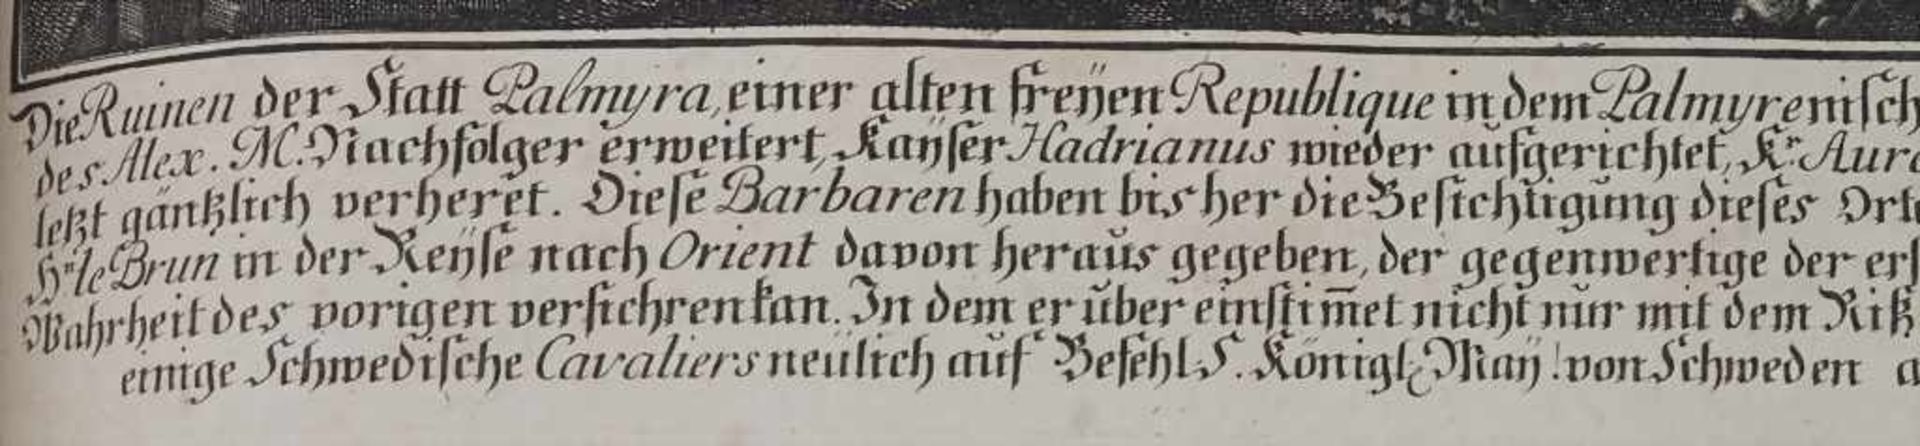 Die Ruinen der Statt Palmyra, einer alten freÿen Republique in dem Palmyrenisch
des Alex. M. Nachfolger erweitert, Kaÿser Hadrianus wieder aufgerichtet, Kr. Aure
letzt gäntzlich verheret. Diese Barbaren haben bis her die Besichtigung dieses Ort
Hr. le Brun in der Reÿse nach Orient davon heraus gegeben, der gegenwertige der ers
Wahrheit des vorigen versichren kan. In dem er über einstim̅et nicht nur mit dem Riß
einige Schwedische Cavaliers neülich auf Befehl S. Königl. Maÿ. von Schweden a